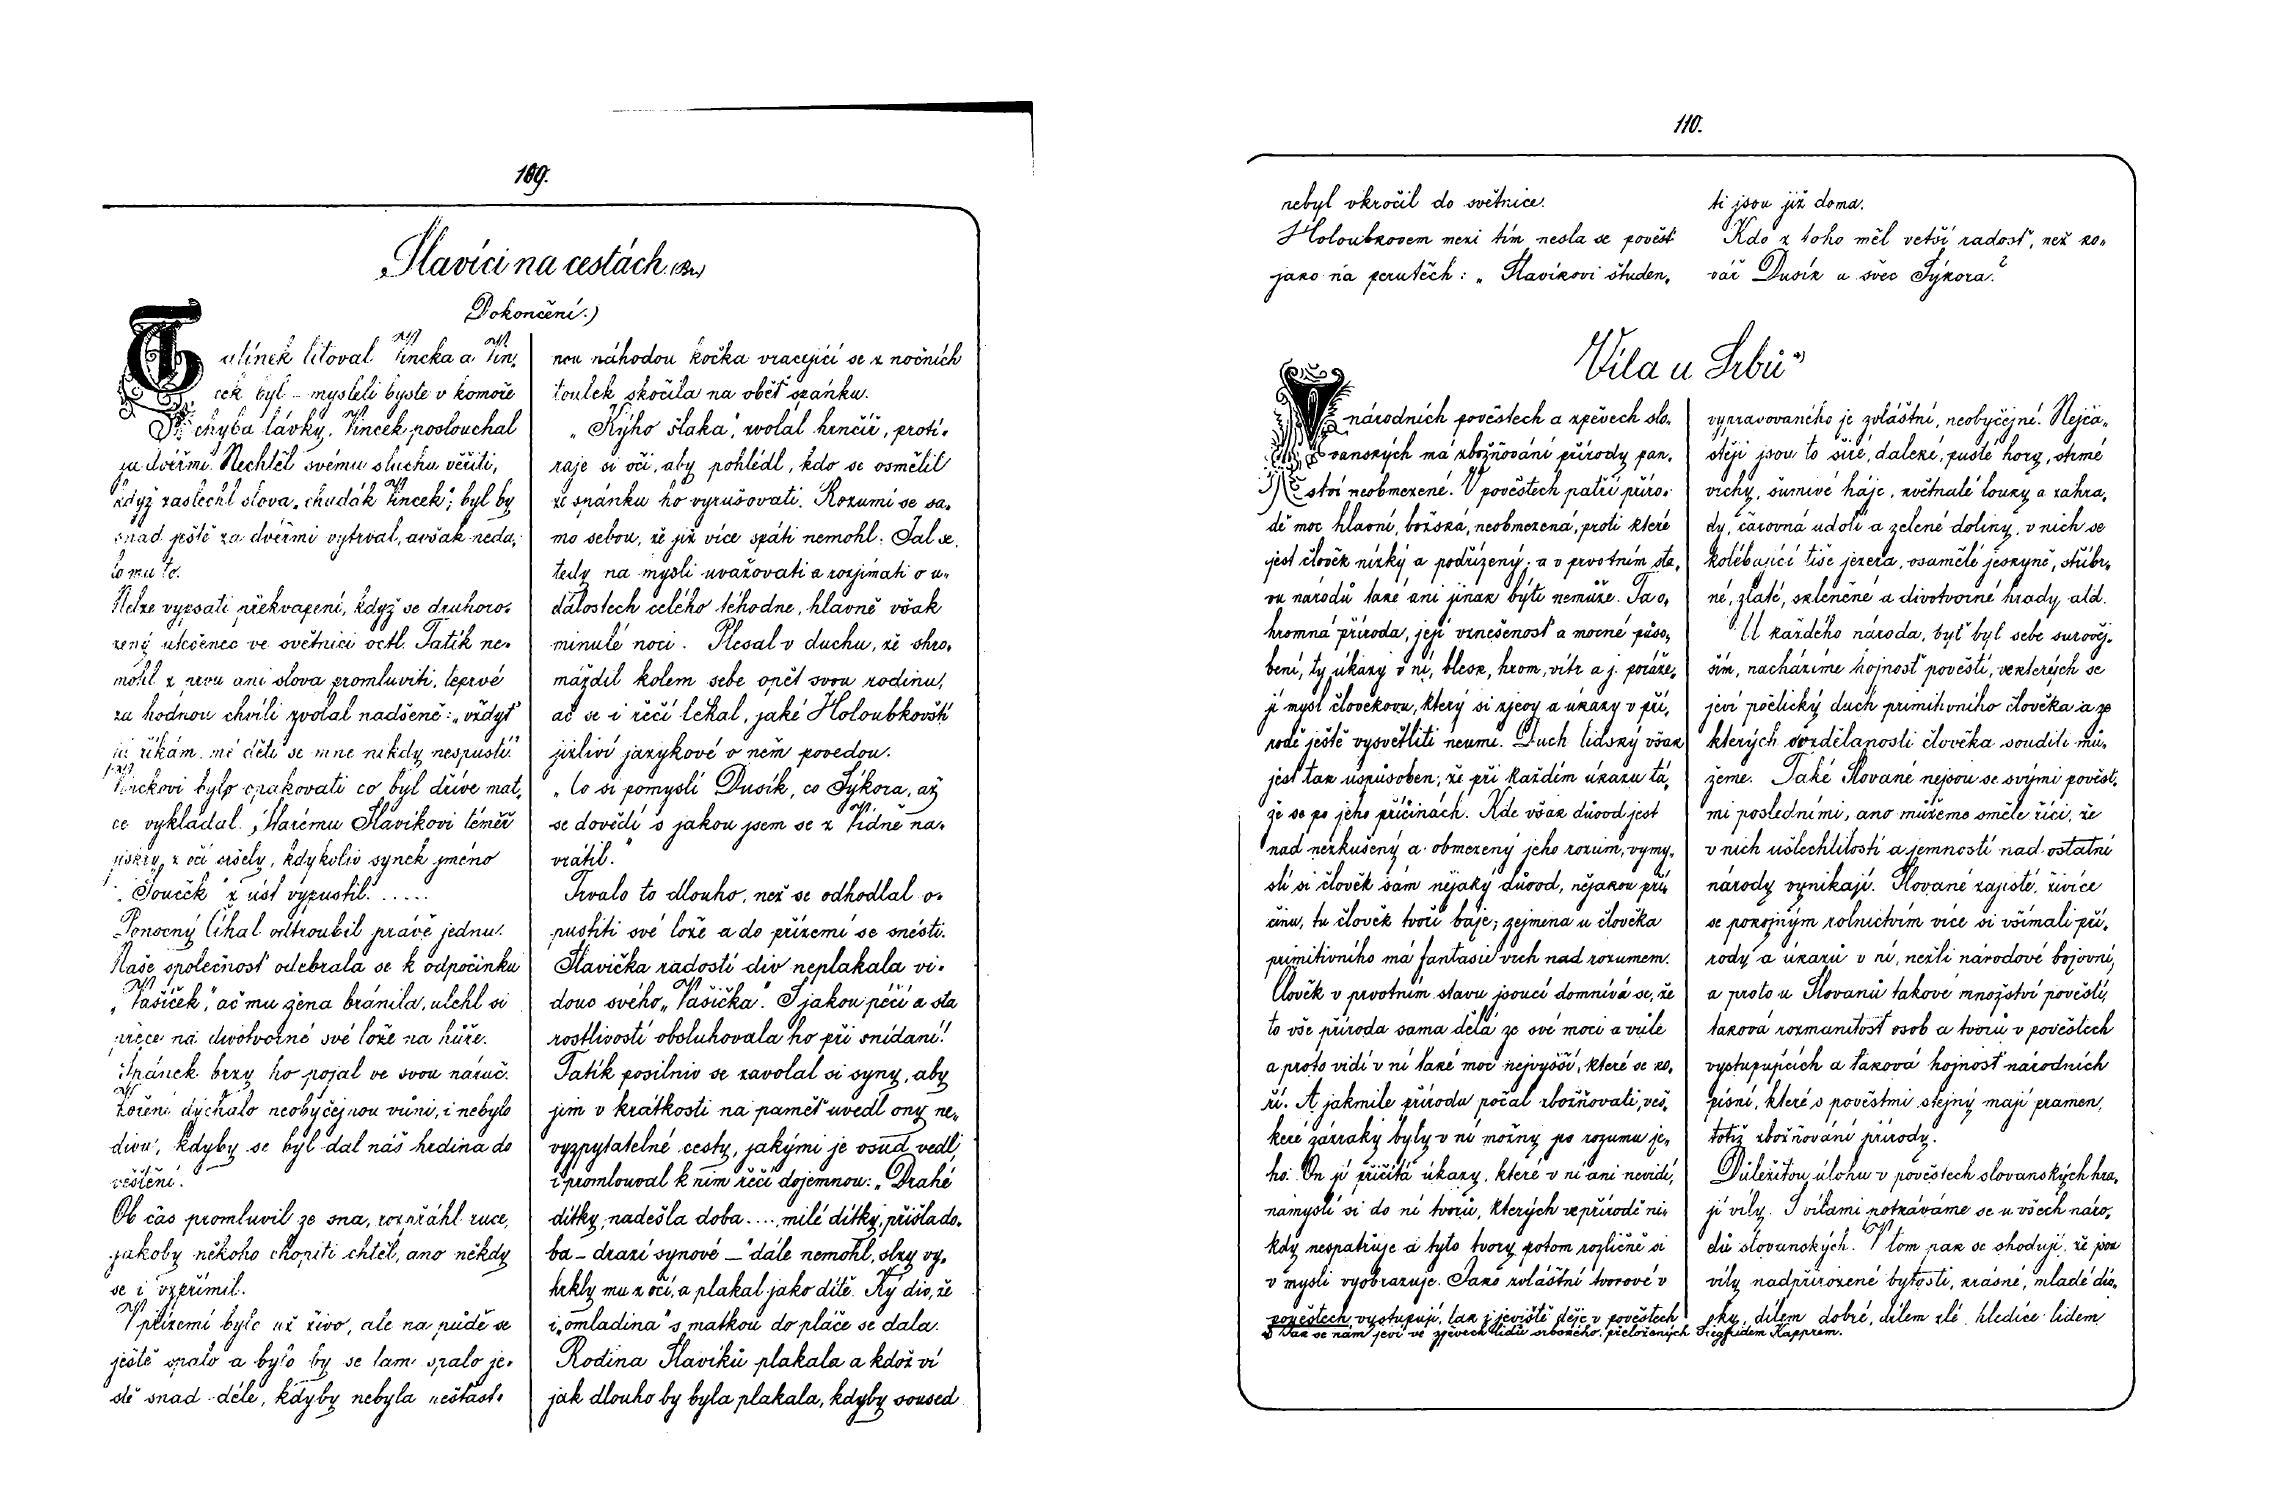 109.
Slavíci na cestách.
(Dokončení.)
Tulínek litoval Vincka a Vin-
cek byl – mysleli byste v komoře
chyba lávky. Vincek poslouchal
za dvéřmi. Nechtěl svému sluchu věřiti,
když zaslechl slova „chudák Vincek“; byl by
snad ještě za dvéřmi vytrval, avšak neda-
lo mu to.
Nelze vypsati překvapení, když se druhoro-
zený utečenec ve světnici octl. Tatík ne-
mohl z prvu ani slova promluviti, teprvé
za hodnou chvíli zvolal nadšeně: „vždyť
já říkám, mé děti se mne nikdy nespustí.“
Vinckovi bylo opakovati co byl dříve mat-
ce vykládal. Starému Slavíkovi téměř
jiskry z očí sršely, kdykoliv synek jméno
„Souček“ z úst vypustil. . . . . .
Ponocný Líhal odtroubil právě jednu.
Naše společnosť odebrala se k odpočinku
„Vašíček,“ ač mu žena bránila, ulehl si
přece na divotvorné své lože na hůře.
Spánek brzy ho pojal ve svou náruč.
Koření dýchalo neobyčejnou vůní, i nebylo
divu, kdyby se byl dal náš hrdina do
věštění.
Ob čas promluvil ze sna, rozpřáhl ruce,
jakoby někoho chopiti chtěl, ano někdy
se i vzpřímil.
V přízemí bylo už živo, ale na půdě se
ještě spalo a bylo by se tam spalo je-
ště snad déle, kdyby nebyla nešťast-
nou náhodou kočka vracející se z nočních
toulek skočila na oběť spánku.
„Kýho šlaka“, zvolal hrnčíř, protí-
raje si oči, aby pohlédl, kdo se osmělil
ze spánku ho vyrušovati. Rozumí se sa-
mo sebou, že již více spáti nemohl. Jal se
tedy na mysli uvažovati a rozjímati o u-
dálostech celého téhodne, hlavně však
minulé noci. Plesal v duchu, že shro-
máždil kolem sebe opět svou rodinu,
ač se i řečí lekal, jaké Holoubkovští
jizliví jazykové o něm povedou.
„Co si pomyslí Dusík, co Sýkora, až
se dovědí s jakou jsem se z Vídně na-
vrátil.“
Trvalo to dlouho, než se odhodlal o-
pustiti své lože a do přízemí se snésti.
Slavička radostí div neplakala vi-
douc svého „Vašíčka“. S jakou péčí a sta
rostlivostí obsluhovala ho při snídaní!
Tatík posilniv se zavolal si syny, aby
jim v krátkosti na paměť uvedl ony ne-
vyzpytatelné cesty, jakými je osud vedl,
i promlouval k nim řečí dojemnou: „Drahé
dítky, nadešla doba.... milé dítky, přišla do-
ba – drazí synové –“ dále nemohl, slzy vy-
hrkly mu z očí, a plakal jako dítě. Ký div, že
i „omladina“ s matkou do pláče se dala.
Rodina Slavíků plakala a kdož ví
jak dlouho by byla plakala, kdyby soused
110.
nebyl vkročil do světnice.
Holoubkovem mezi tím nesla se pověsť
jako na perutěch: „Slavíkovi studen-
ti jsou již doma.
Kdo z toho měl vetší radosť, než ko-
vář Dusík a švec Sýkora?
Víla u Srbů*)
V národních pověstech a zpěvech slo-
vanských má zbožňování přírody pan-
ství neobmezené. V pověstech patří příro-
dě moc hlavní, božská, neobmezená, proti které
jest člověk nízký a podřízený; a v prvotním sta-
vu národů také ani jinak býti nemůže. Ta o-
hromná příroda, její vznešenosť a mocné půso-
bení, ty úkazy v ní, blesk, hrom, vítr a j. poráže-
jí mysl člověkovu, který si zjevy a úkazy v pří-
rodě ještě vysvětliti neumí. Duch lidský však
jest tak uspůsoben, že při každém úkazu tá-
že se po jeho příčinách. Kde však důvod jest
nad nezkušený a obmezený jeho rozum, vymy-
slí si člověk sám nějaký důvod, nějakou pří-
činu, tu člověk tvoří báje; zejmena u člověka
primitivního má fantasie vrch nad rozumem.
Člověk v prvotním stavu jsoucí domnívá se, že
to vše příroda sama dělá ze své moci a vůle
a proto vidí v ní také moc nejvyšší, které se ko-
ří. A jakmile přírodu počal zbožňovati, veš-
keré zázraky byly v ní možny po rozumu je-
ho. On jí přičítá úkazy, které v ní ani nevidí,
namyslí si do ní tvorů, kterých v přírodě ni-
kdy nespatřuje a tyto tvory potom rozličně si
v mysli vyobrazuje. Jako zvláštní tvorové v
pověstech vystupují, tak i jeviště děje v pověstech
vypravovaného je zvláštní, neobyčejné. Nejča-
stěji jsou to širé, daleké, pusté hory, strmé
vrchy, šumivé háje, květnaté louky a zahra-
dy, čarovná udolí a zelené doliny, v nich se
kolébající tiše jezera, osamělé jeskyně, stříbr-
né, zlaté, skleněné a divotvorné hrady atd.
U každého národa, byť byl sebe surověj-
ším, nacházíme hojnosť pověstí, ve kterých se
jeví poetický duch primitivního člověka a ze
kterých o vzdělanosti člověka souditi mů-
žeme. Také Slované nejsou se svými pověst-
mi posledními, ano můžeme směle říci, že
v nich ušlechtilostí a jemností nad ostatní
národy vynikají. Slované zajisté, živíce
se pokojným rolnictvím více si všímali pří-
rody a úkazů v ní, nežli národové bojovní,
a proto u Slovanů takové množství pověstí,
taková rozmanitosť osob a tvorů v pověstech
vystupujících a taková hojnosť národních
písní, které s pověstmi stejný mají pramen,
totiž zbožňování přírody.
Důležitou úlohu v pověstech slovanských hra-
jí víly. S vílami potkáváme se u všech náro-
dů slovanských. V tom pak se shodují, že jsou
víly nadpřirozené bytosti, krásné, mladé dív-
ky, dílem dobré, dílem zlé hledíce lidem
*) Jak se nám jeví ve zpěvech lidu srbského, přeložených Siegfridem Kapprem.